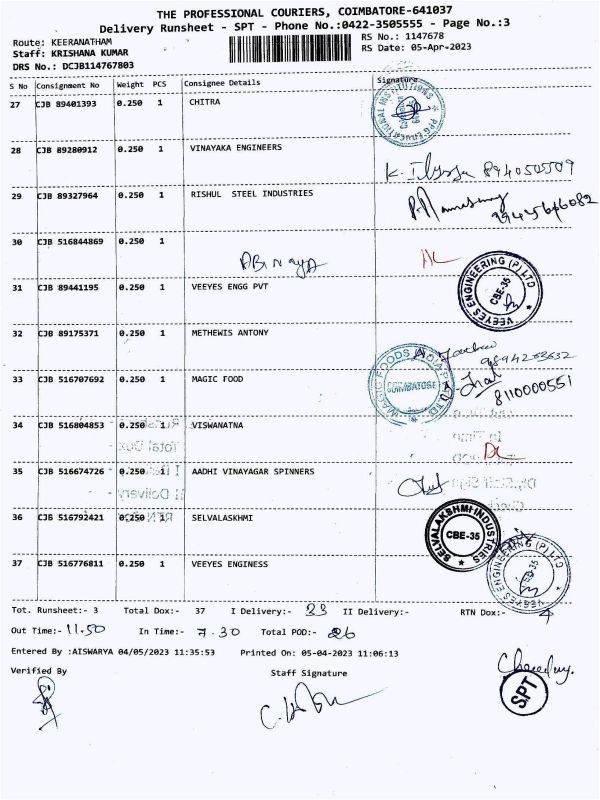 THE PROFESSIONAL COURIERS, COIMBATORE-641037
Delivery Runsheet - SPT - Phone No.:0422-3505555 - Page No.:3
Route: KEERANATHAM RS No.: 1147678
Staff: KRISHANA KUMAR RS Date: 05-Apr-2023
DRS No.: DCJB114767803
S No Consignment No Weight PCS Consignee Details Signature
27 CJB 89401393 0.250 1 CHITRA
PPG EDUCATIONAL INSTITUTIONS
28 CJB 89280912 0.250 1 VINAYAKA ENGINEERS
8940505509
29 CJB 89327964 0.250 1 RISHUL STEEL INDUSTRIES
30 CJB 516844869 0.250 1
ABINAYA
31 CJB 89441195 0.250 1 VEEYES ENGG PVT
VEEYES ENGINEERING (P) LTD
CBE-35
32 CJB 89175371 0.250 1 METHEWIS ANTONY
33 CJB 516707692 0.250 1 MAGIC FOOD
MAGIC FOODS INDIA P LTD
COIMBATORE
8110000551
34 CJB 516804853 0.250 1 VISWANATNA
DL
35 CJB 516674726 0.250 1 AADHI VINAYAGAR SPINNERS
36 CJB 516792421 0.250 1 SELVALASKHMI
SELVALAKSHMI INDUSTRIES
CBE-35
37 CJB 516776811 0.250 1 VEEYES ENGINESS
VEEYES ENGINEERING (P) LTD
CBE-35
Tot. Runsheet:- 3 Total Dox:- 37 I Delivery:- 33 II Delivery:- RTN Dox:- 4
Out Time:- 11.50 In Time:- 7.30 Total POD:- 26
Entered By :AISWARYA 04/05/2023 11:35:53 Printed On: 05-04-2023 11:06:13
Verified By Staff Signature
SPT